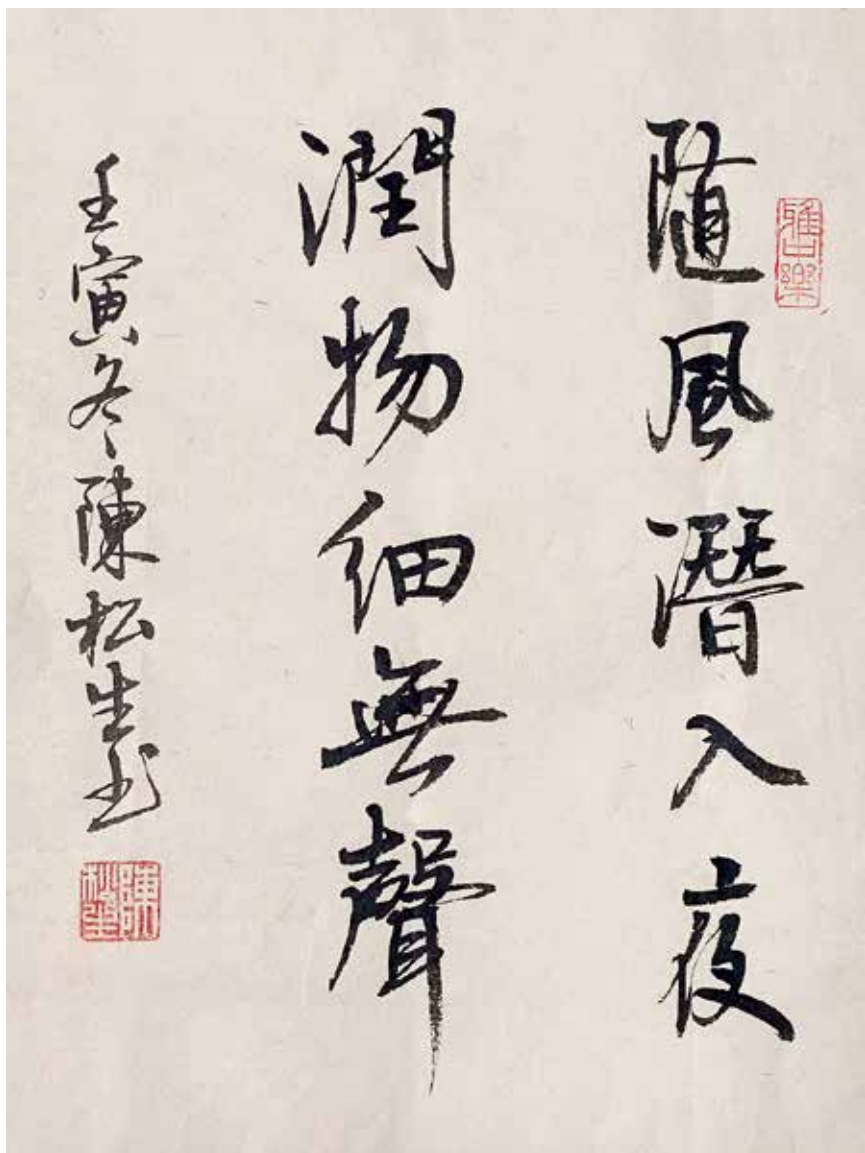 隨風潛入夜
潤物細無聲
壬寅冬陳松生書
陳松生